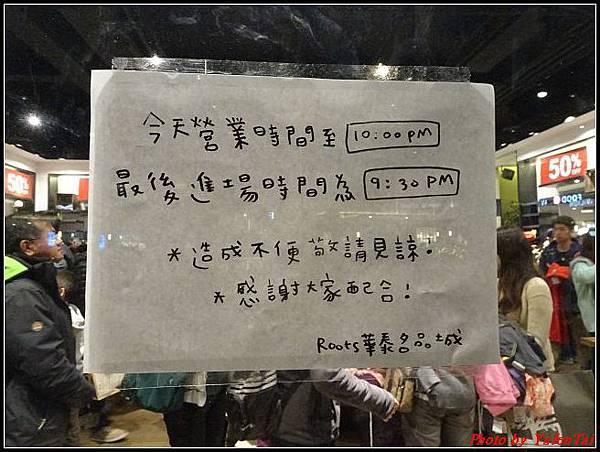 今天營業時間至 10:00PM
最後進場時間為 9:30PM
*造成不便敬請見諒!
*感謝大家配合!
Roots華泰名品城
50%
50%
FOOD
Photo by YuksnTai